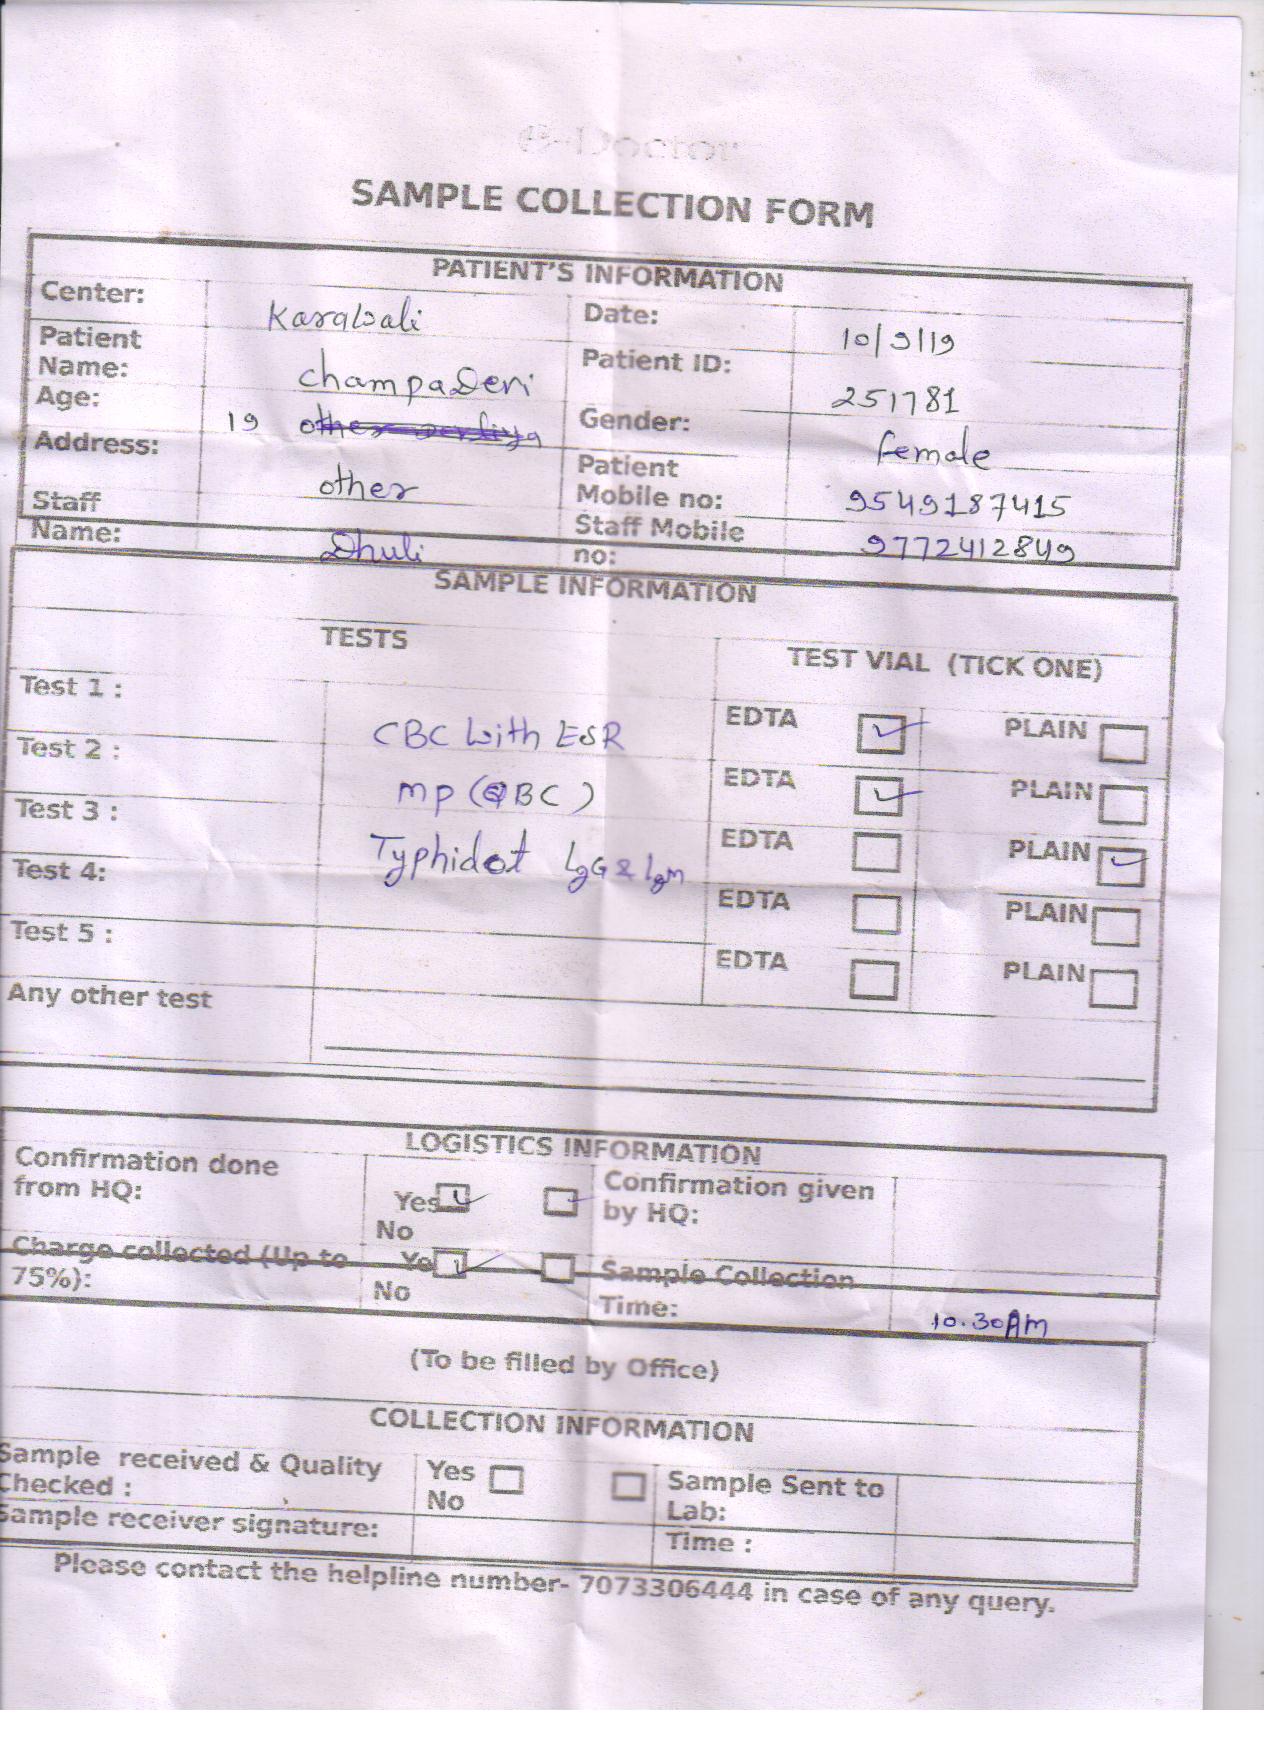 SAMPLE COLLECTION FORM
PATIENT'S INFORMATION
Center: Karabali Date: 10/9/19
Patient Name: champaDevi Patient ID: 251781
Age: 19 Gender: female
Address: other Patient Mobile no: 9549187415
Staff Name: Dhuli Staff Mobile no: 9772412849
SAMPLE INFORMATION
TESTS TEST VIAL (TICK ONE)
Test 1 : CBC with ESR EDTA PLAIN
Test 2 : mp (QBC) EDTA PLAIN
Test 3 : Typhidot IgG & Igm EDTA PLAIN
Test 4: EDTA PLAIN
Test 5 : EDTA PLAIN
Any other test
LOGISTICS INFORMATION
Confirmation done from HQ: Yes No Confirmation given by HQ:
Charge collected (Up to 75%): Ye No Sample Collection Time: 10.30AM
(To be filled by Office)
COLLECTION INFORMATION
Sample received & Quality Checked : Yes No Sample Sent to Lab:
Sample receiver signature: Time :
Please contact the helpline number- 7073306444 in case of any query.